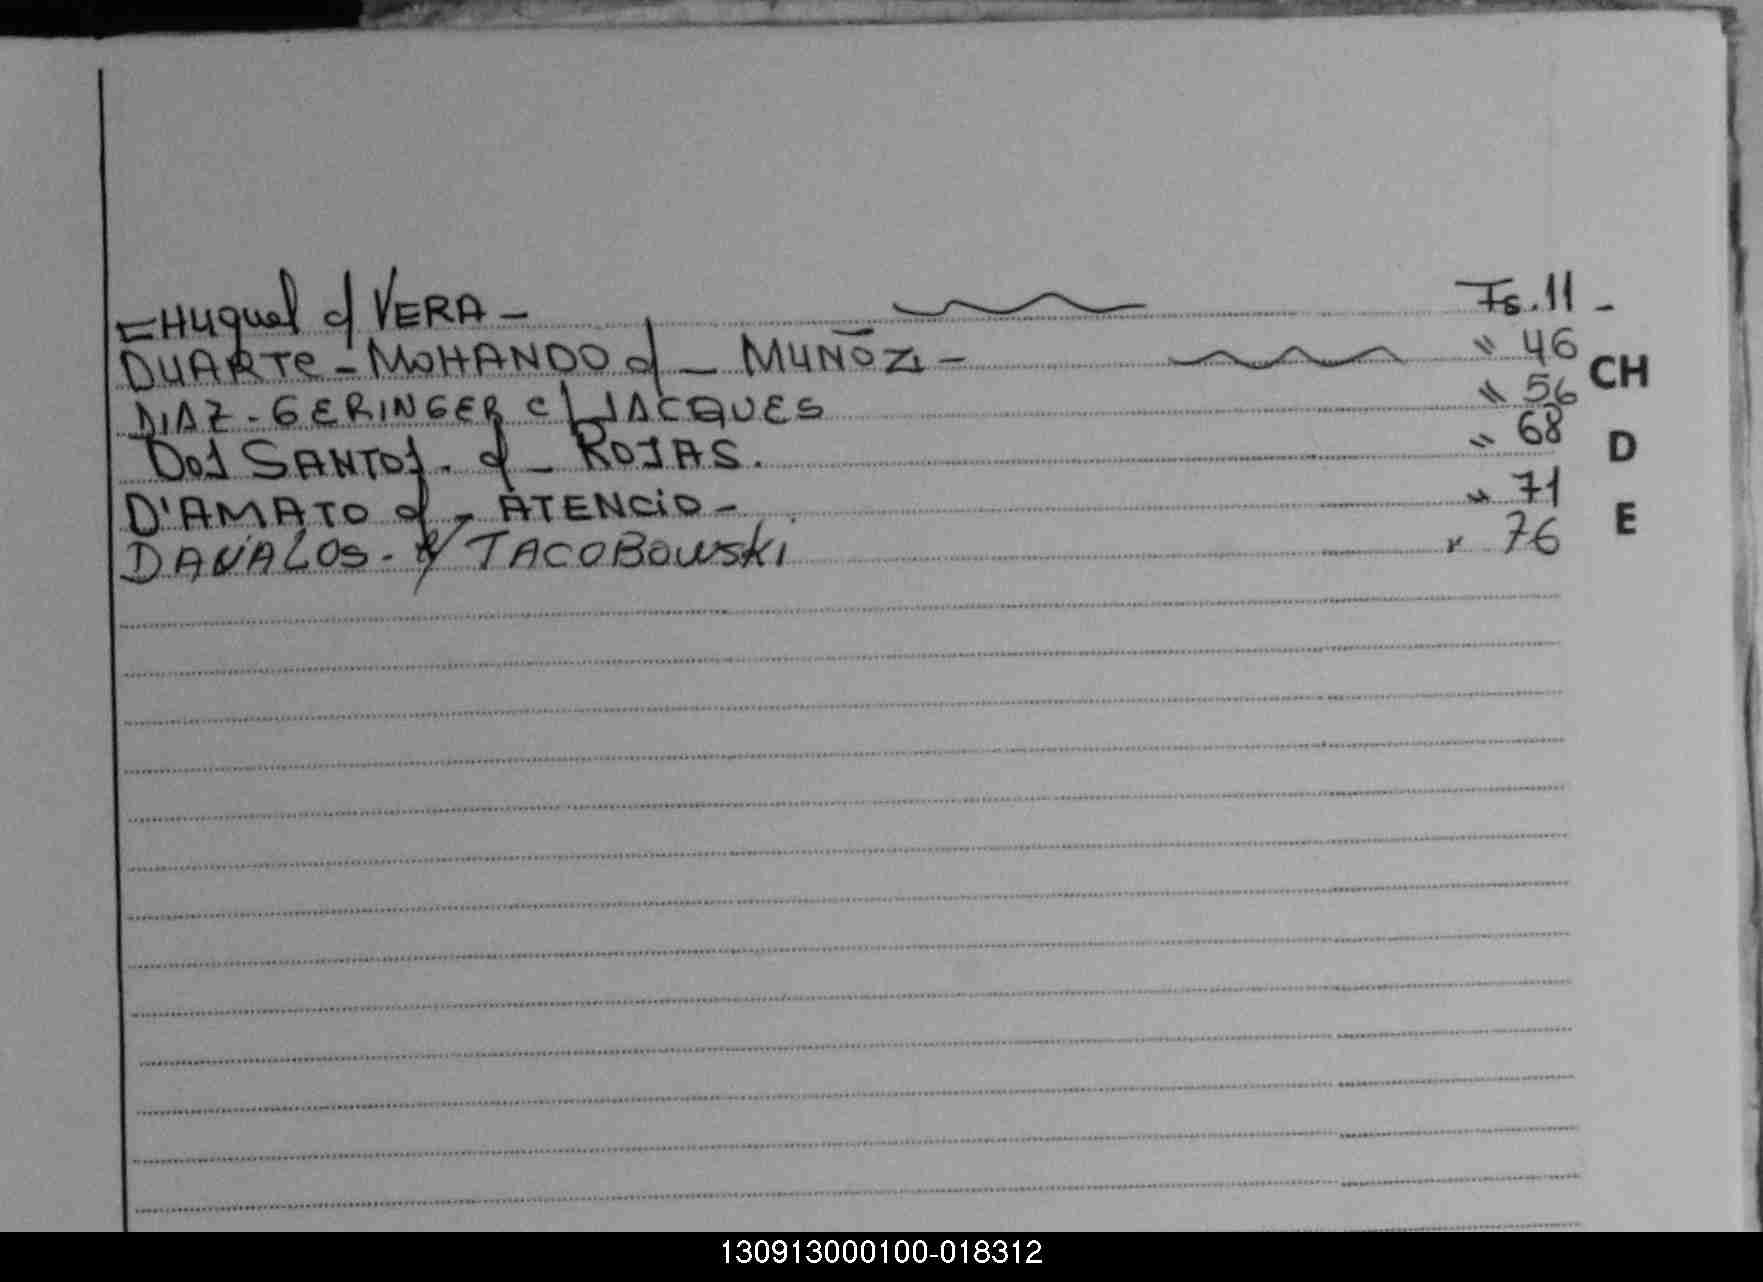 EHuquel c/ VERA - Fs. 11 -
DUARTE - MOHANDO c/ - MUÑOZ - " 46
CH
DIAZ - GERINGER c/ JACQUES " 56
DOS SANTOS. c/ - ROJAS. " 68
D
D'AMATO c/ - ATENCIO - " 71
E
DAVALOS - c/ TACOBOWSKI " 76
130913000100-018312